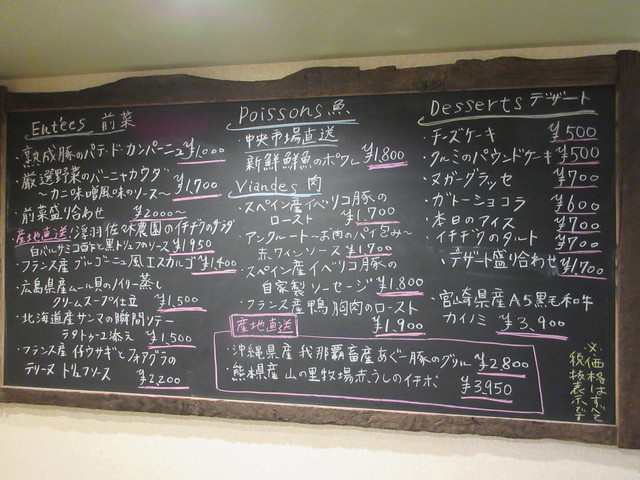 Entées 前菜
・熟成豚のパテ・ド・カンパーニュ ¥1,000
・厳選野菜のバーニャカウダ
～カニ味噌風味のソース～ ¥1,700
・前菜盛り合わせ ¥2000～
・産地直送！浮羽佐々木農園のイチヂクのサラダ
白バルサミコ酢と黒トリュフのソース ¥1,950
・フランス産 ブルゴーニュ風エスカルゴ ¥1,400
・広島県産ムール貝のノイリー蒸し
クリームスープ仕立 ¥1,500
・北海道産サンマの瞬間ソテー
ラタトゥーユ添え ¥1,500
・フランス産 仔ウサギとフォアグラの
テリーヌ トリュフソース ¥2,200
Poissons 魚
・中央市場直送
新鮮鮮魚のポワレ ¥1,800
Viandes 肉
・スペイン産イベリコ豚の
ロースト ¥1,700
・アンクルート～お肉のパイ包み～
赤ワインソース ¥1,700
・スペイン産イベリコ豚の
自家製ソーセージ ¥1,800
・フランス産鴨胸肉のロースト
¥1,900
産地直送
・沖縄県産 我那覇畜産あぐー豚のグリル ¥2,800
・熊本県産 山の里牧場赤うしのイチボ ¥3,950
Desserts デザート
・チーズケーキ ¥500
・クルミのパウンドケーキ ¥500
・ヌガーグラッセ ¥700
・ガトーショコラ ¥600
・本日のアイス ¥700
・イチヂクのタルト ¥700
・デザート盛り合わせ ¥1,700
・宮崎県産A5黒毛和牛
カイノミ ¥3,900
※価格はすべて
税抜表示です